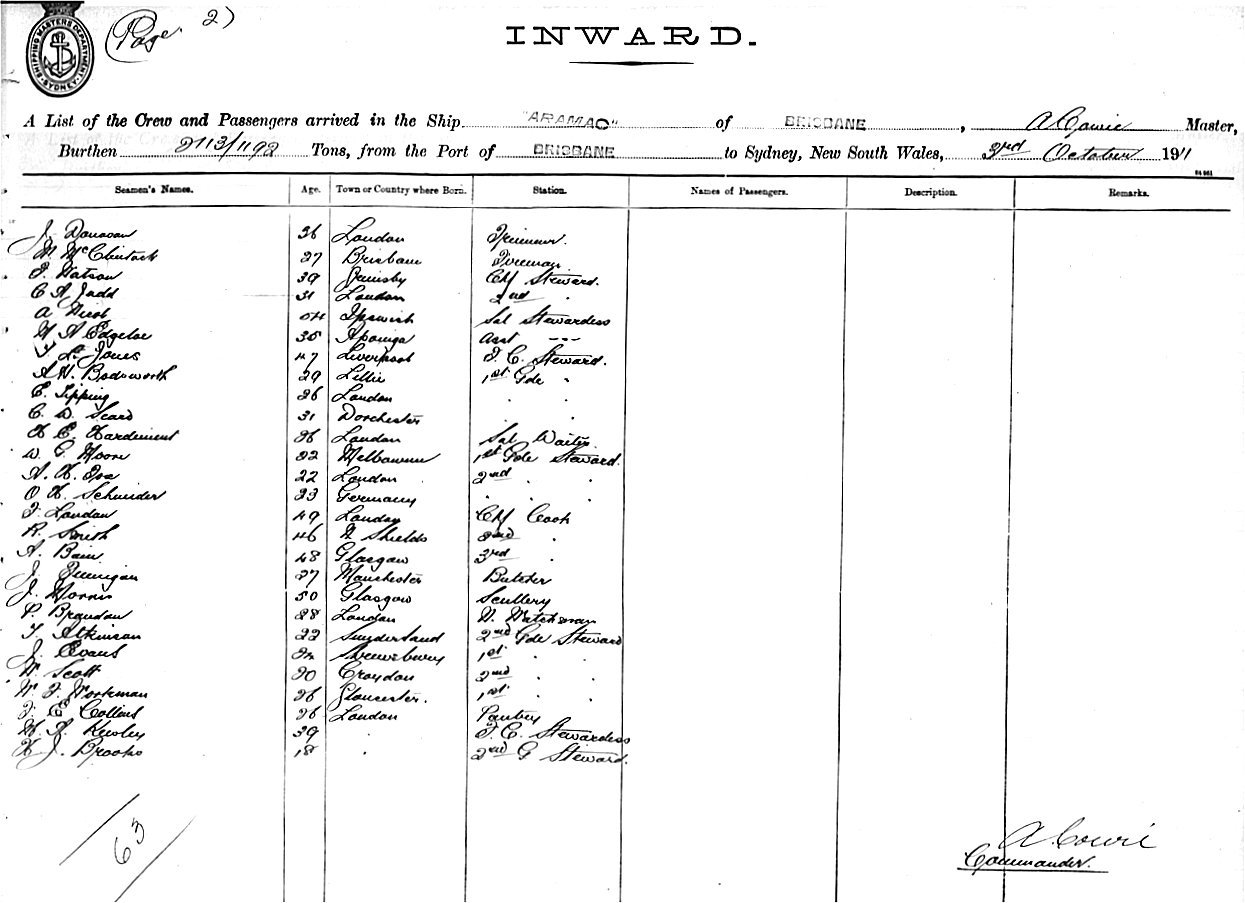 (Page 2)
SHIPPING MASTERS DEPARTMENT SYDNEY
INWARD.
A List of the Crew and Passengers arrived in the Ship "ARAMAC" of BRISBANE, A Cowie Master,
Burthen 2113/1192 Tons, from the Port of BRISBANE to Sydney, New South Wales, 3rd October 1911
Seamen's Names. Age. Town or Country where Born. Station. Names of Passengers. Description. Remarks.
J. Donovan 36 London Trimmer.
W. McClintock 27 Brisbane Fireman
F. Watson 39 Grimsby Chf Steward.
C A Judd 31 London 2nd "
A 54 Ipswich Sal Stewardess
W A Edgeloe 35 Asst ---
T L Jones 47 Liverpool F. C. Steward.
A W. Bodsworth 29 1st Gde "
E. Tipping 26 London " "
C. D. Seard 31 Dorchester " "
H E. Hardiment 26 London Sal Waiter
W. G. Moore 22 Melbourne 1st Gde Steward.
A. H. 22 London 2nd " "
O H. Schneider 23 Germany " " "
F. London 49 London Chf Cook
R. Smith 46 N Shields 2nd "
A. Bain 48 Glasgow 3rd "
J. Finnigan 27 Manchester Butcher
J. Morris 50 Glasgow Scullery
P. Brandon 28 London N. Watchman
T. Atkinson 22 Sunderland 2nd Gde Steward
J. Evans Shrewsbury 1st " "
W. Scott 20 Croydon 2nd " "
W. J. Workman 26 Gloucester. 1st " "
F. E Collins 26 London Pantry
M. A. 39 " F. C. Stewardess
H J. Brooks 18 " 2nd G Steward.
63
A. Cowie
Commander.